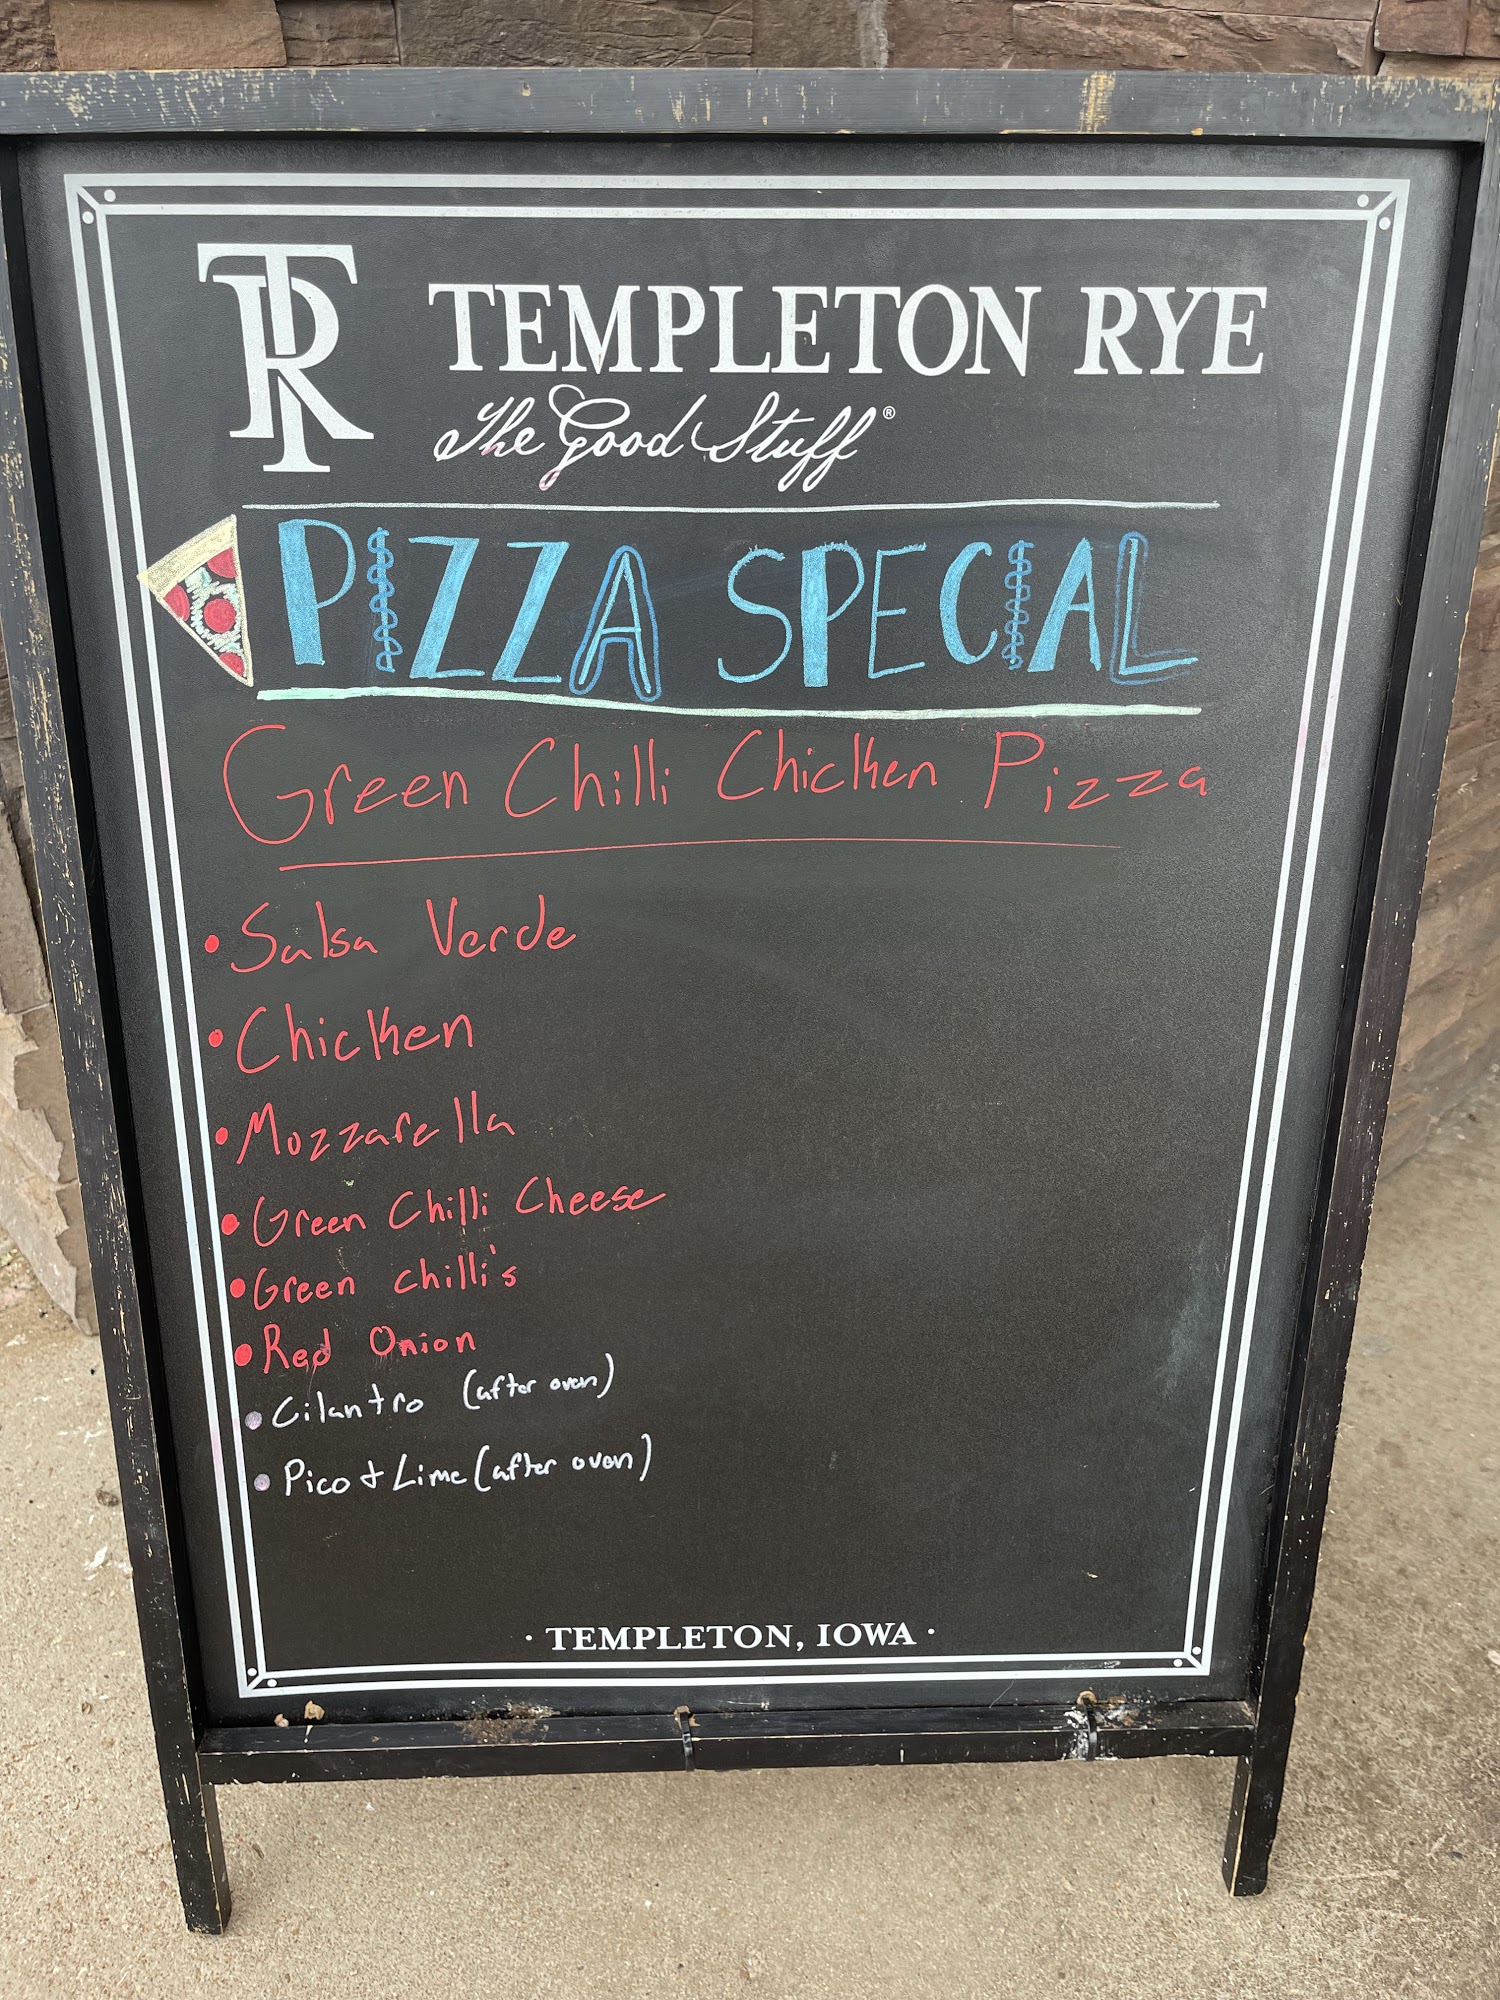 TR TEMPLETON RYE
The Good Stuff®
PIZZA SPECIAL
Green Chilli Chicken Pizza
• Salsa Verde
• Chicken
• Mozzarella
• Green Chilli Cheese
• Green chilli's
• Red Onion
• Cilantro (after oven)
• Pico & Lime (after oven)
· TEMPLETON, IOWA ·